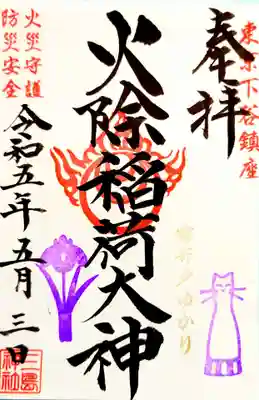 東京下谷鎮座
奉拝
火除稲荷大神
火災守護
防災安全
令和五年五月三日
三島
神社